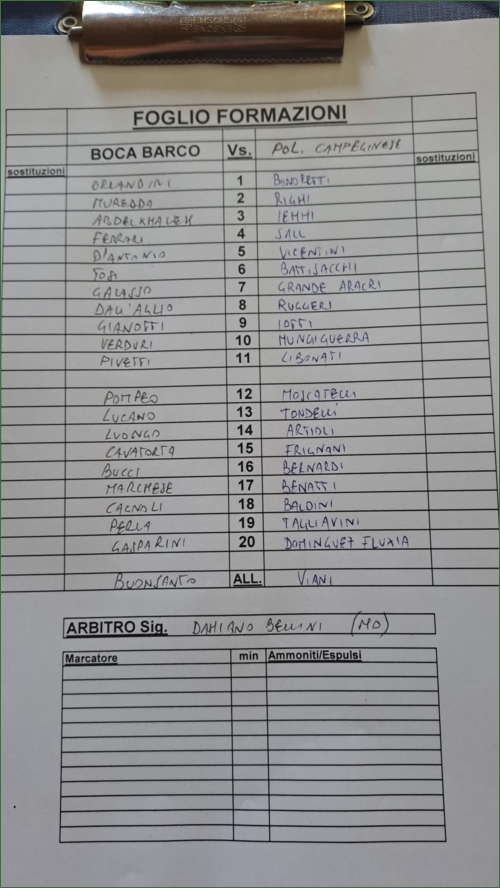 FOGLIO FORMAZIONI
BOCA BARCO Vs. POL. CAMPEGINESE
sostituzioni sostituzioni
ORLANDINI 1 BONDRETTI
MUREDDO 2 RIGHI
ABDELKHALEK 3 IEMMI
FERRARI 4 SALL
D'ANTONIO 5 VICENTINI
TOSI 6 BATTISACCHI
GALASSO 7 GRANDE ARACRI
DALL'AGLIO 8 RUGGERI
GIANOTTI 9 IOTTI
VERDURI 10 MUNGIGUERRA
PIVETTI 11 LIBONATI
POMPEO 12 MOSCATELLI
LUCANO 13 TONDELLI
LUONGO 14 ARTIOLI
CAVATORTA 15 FRIGNANI
BUCCI 16 BERNARDI
MARCHESE 17 BENATTI
CAGNOLI 18 BALDINI
PERLA 19 TAGLIAVINI
GASPARINI 20 DOMINGUEZ FLUXIA
BUONSANTO ALL. VIANI
ARBITRO Sig. DAMIANO BELLINI (MO)
Marcatore min Ammoniti/Espulsi